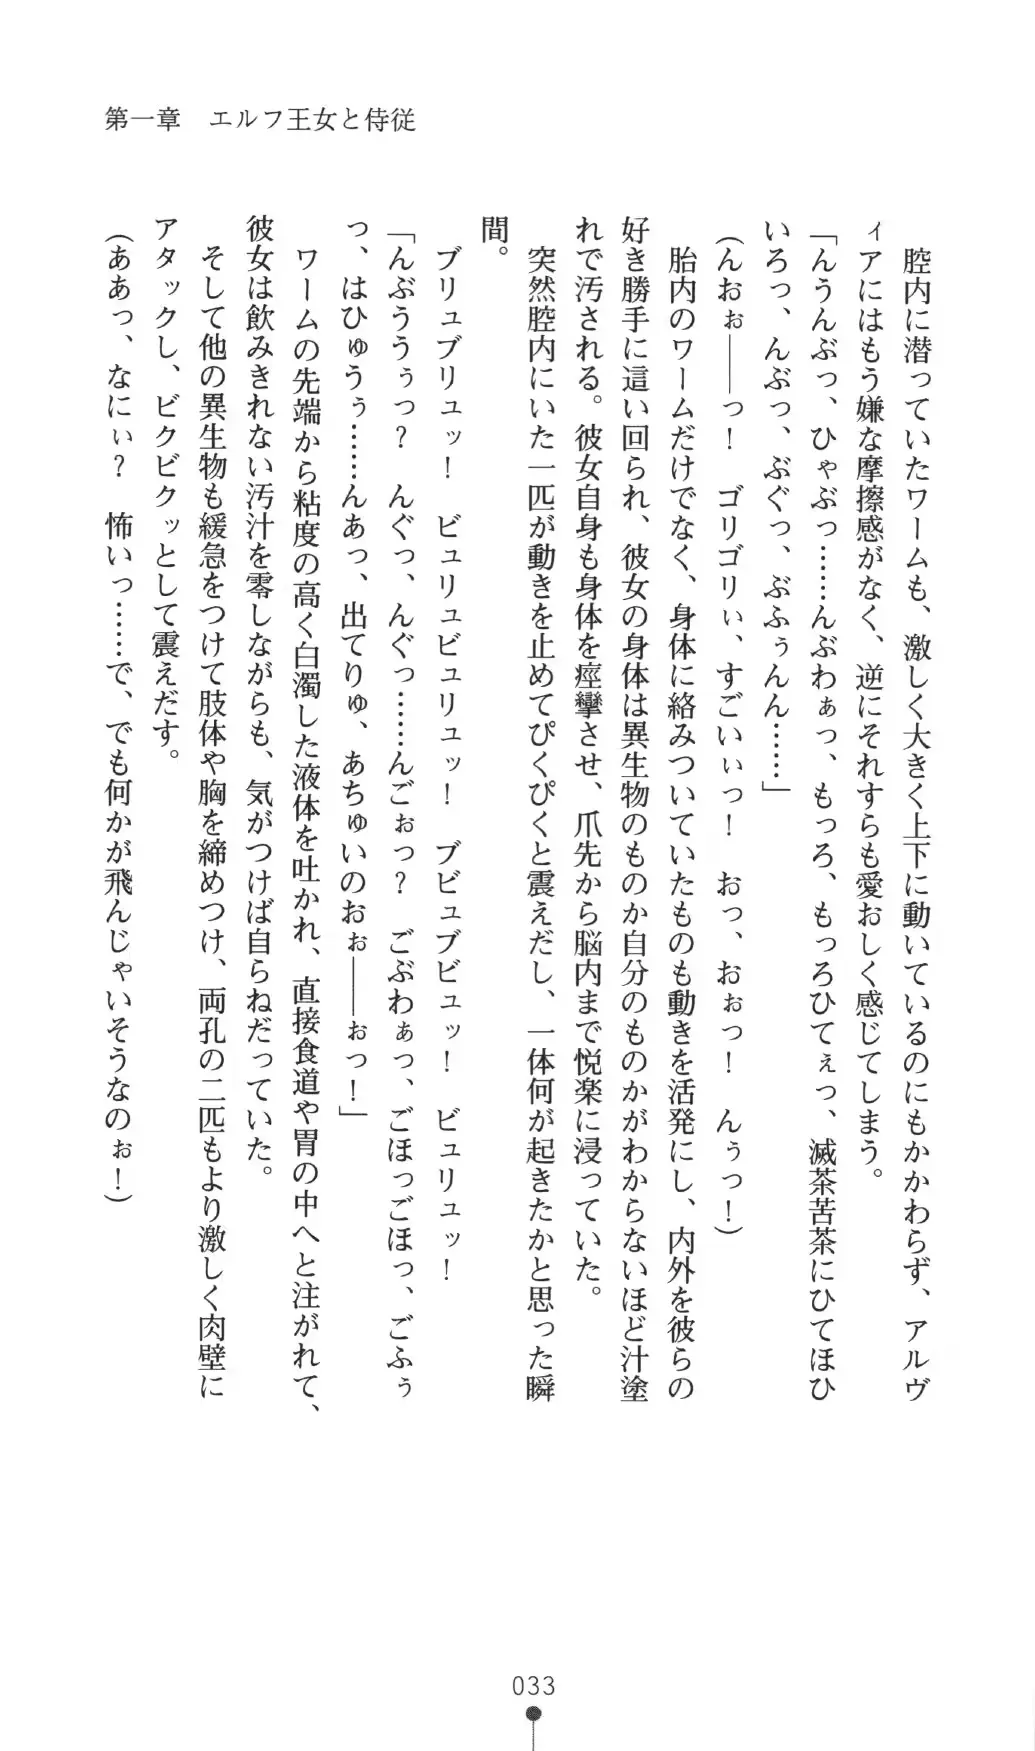 第一章　エルフ王女と侍従
　腔内に潜っていたワームも、激しく大きく上下に動いているのにもかかわらず、アルヴ
ィアにはもう嫌な摩擦感がなく、逆にそれすらも愛おしく感じてしまう。
「んうんぶっ、ひゃぶっ……んぶわぁっ、もっろ、もっろひてぇっ、滅茶苦茶にひてほひ
いろっ、んぶっ、ぶぐっ、ぶふぅんん……」
(んおぉ――っ！　ゴリゴリぃ、すごいぃっ！　おっ、おぉっ！　んぅっ！)
　胎内のワームだけでなく、身体に絡みついていたものも動きを活発にし、内外を彼らの
好き勝手に這い回られ、彼女の身体は異生物のものか自分のものかがわからないほど汁塗
れで汚される。彼女自身も身体を痙攣させ、爪先から脳内まで悦楽に浸っていた。
　突然腔内にいた一匹が動きを止めてぴくぴくと震えだし、一体何が起きたかと思った瞬
間。
　ブリュブリュッ！　ビュリュビュリュッ！　ブビュブビュッ！　ビュリュッ！
「んぶううぅっ？　んぐっ、んぐっ……んごぉっ？　ごぶわぁっ、ごほっごほっ、ごふぅ
っ、はひゅうぅ……んあっ、出てりゅ、あちゅいのおぉ――ぉっ！」
　ワームの先端から粘度の高く白濁した液体を吐かれ、直接食道や胃の中へと注がれて、
彼女は飲みきれない汚汁を零しながらも、気がつけば自らねだっていた。
　そして他の異生物も緩急をつけて肢体や胸を締めつけ、両孔の二匹もより激しく肉壁に
アタックし、ビクビクッとして震えだす。
(ああっ、なにぃ？　怖いっ……で、でも何かが飛んじゃいそうなのぉ！)
033